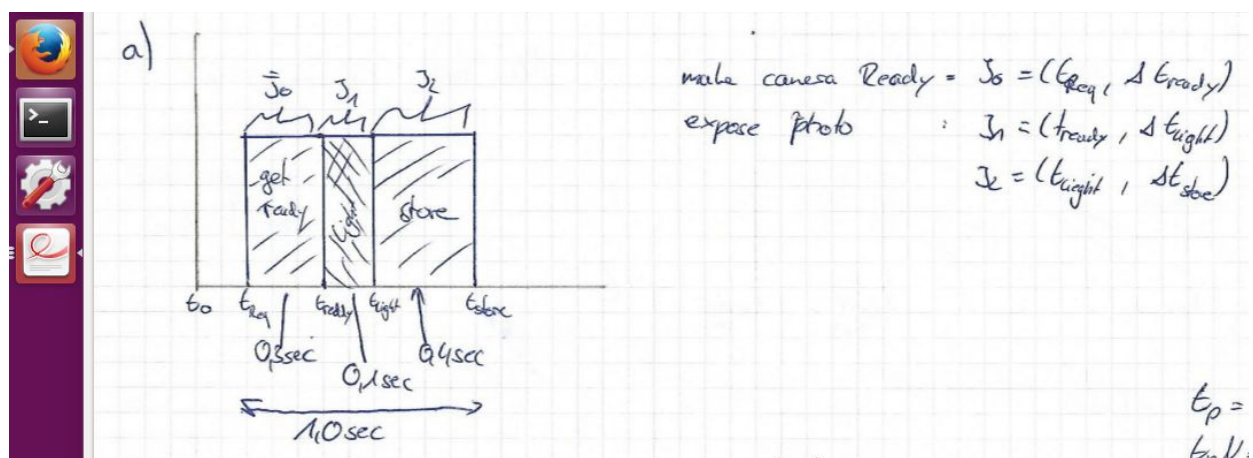 a)
J0 J1 J2
get ready
light
store
t0 tReq tready tlight tstore
0,3sec 0,1sec 0,4sec
1,0sec
make camera Ready = J0 = (tReq, Δ tready)
expose photo : J1 = (tready, Δ tlight)
J2 = (tlieght, Δtstore)
tp =